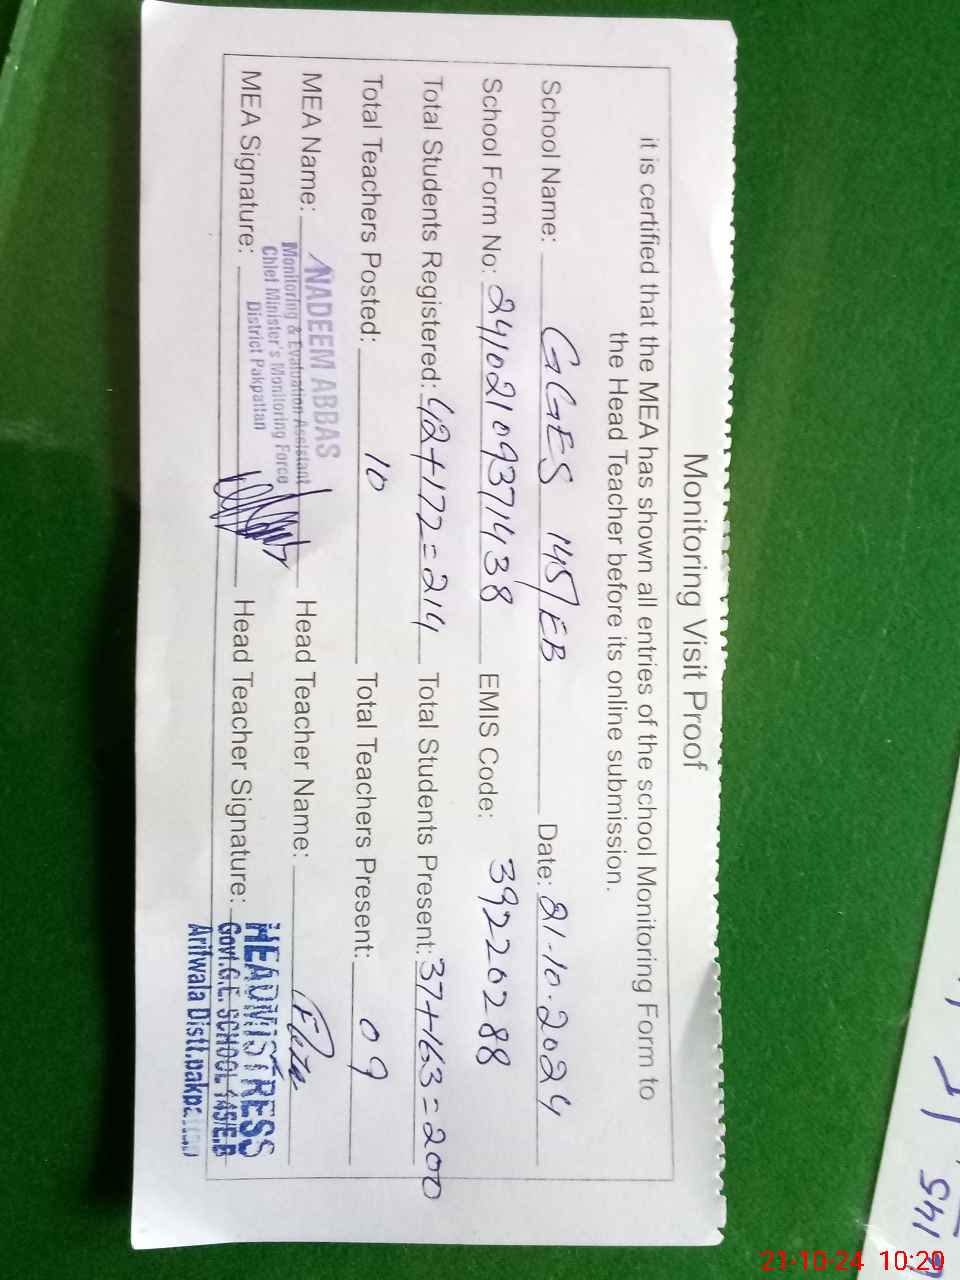 Monitoring Visit Proof
it is certified that the MEA has shown all entries of the school Monitoring Form to
the Head Teacher before its online submission.
School Name: GGES 145/EB Date: 21-10-2024
School Form No: 24102109371438 EMIS Code: 39220288
Total Students Registered: 42+172=214 Total Students Present: 37+163=200
Total Teachers Posted: 10 Total Teachers Present: 09
MEA Name: NADEEM ABBAS Head Teacher Name:
Monitoring & Evaluation Assistant
Chief Minister's Monitoring Force
District Pakpattan
MEA Signature: Head Teacher Signature:
HEADMISTRESS
Govt.G.E. SCHOOL 145/E.B
Arifwala Distt.pakpattan
145
21-10-24 10:20